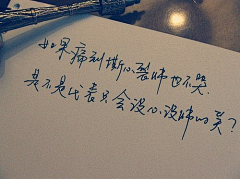 如果痛到撕心裂肺也不哭.
是不是代表只会没心没肺的笑?